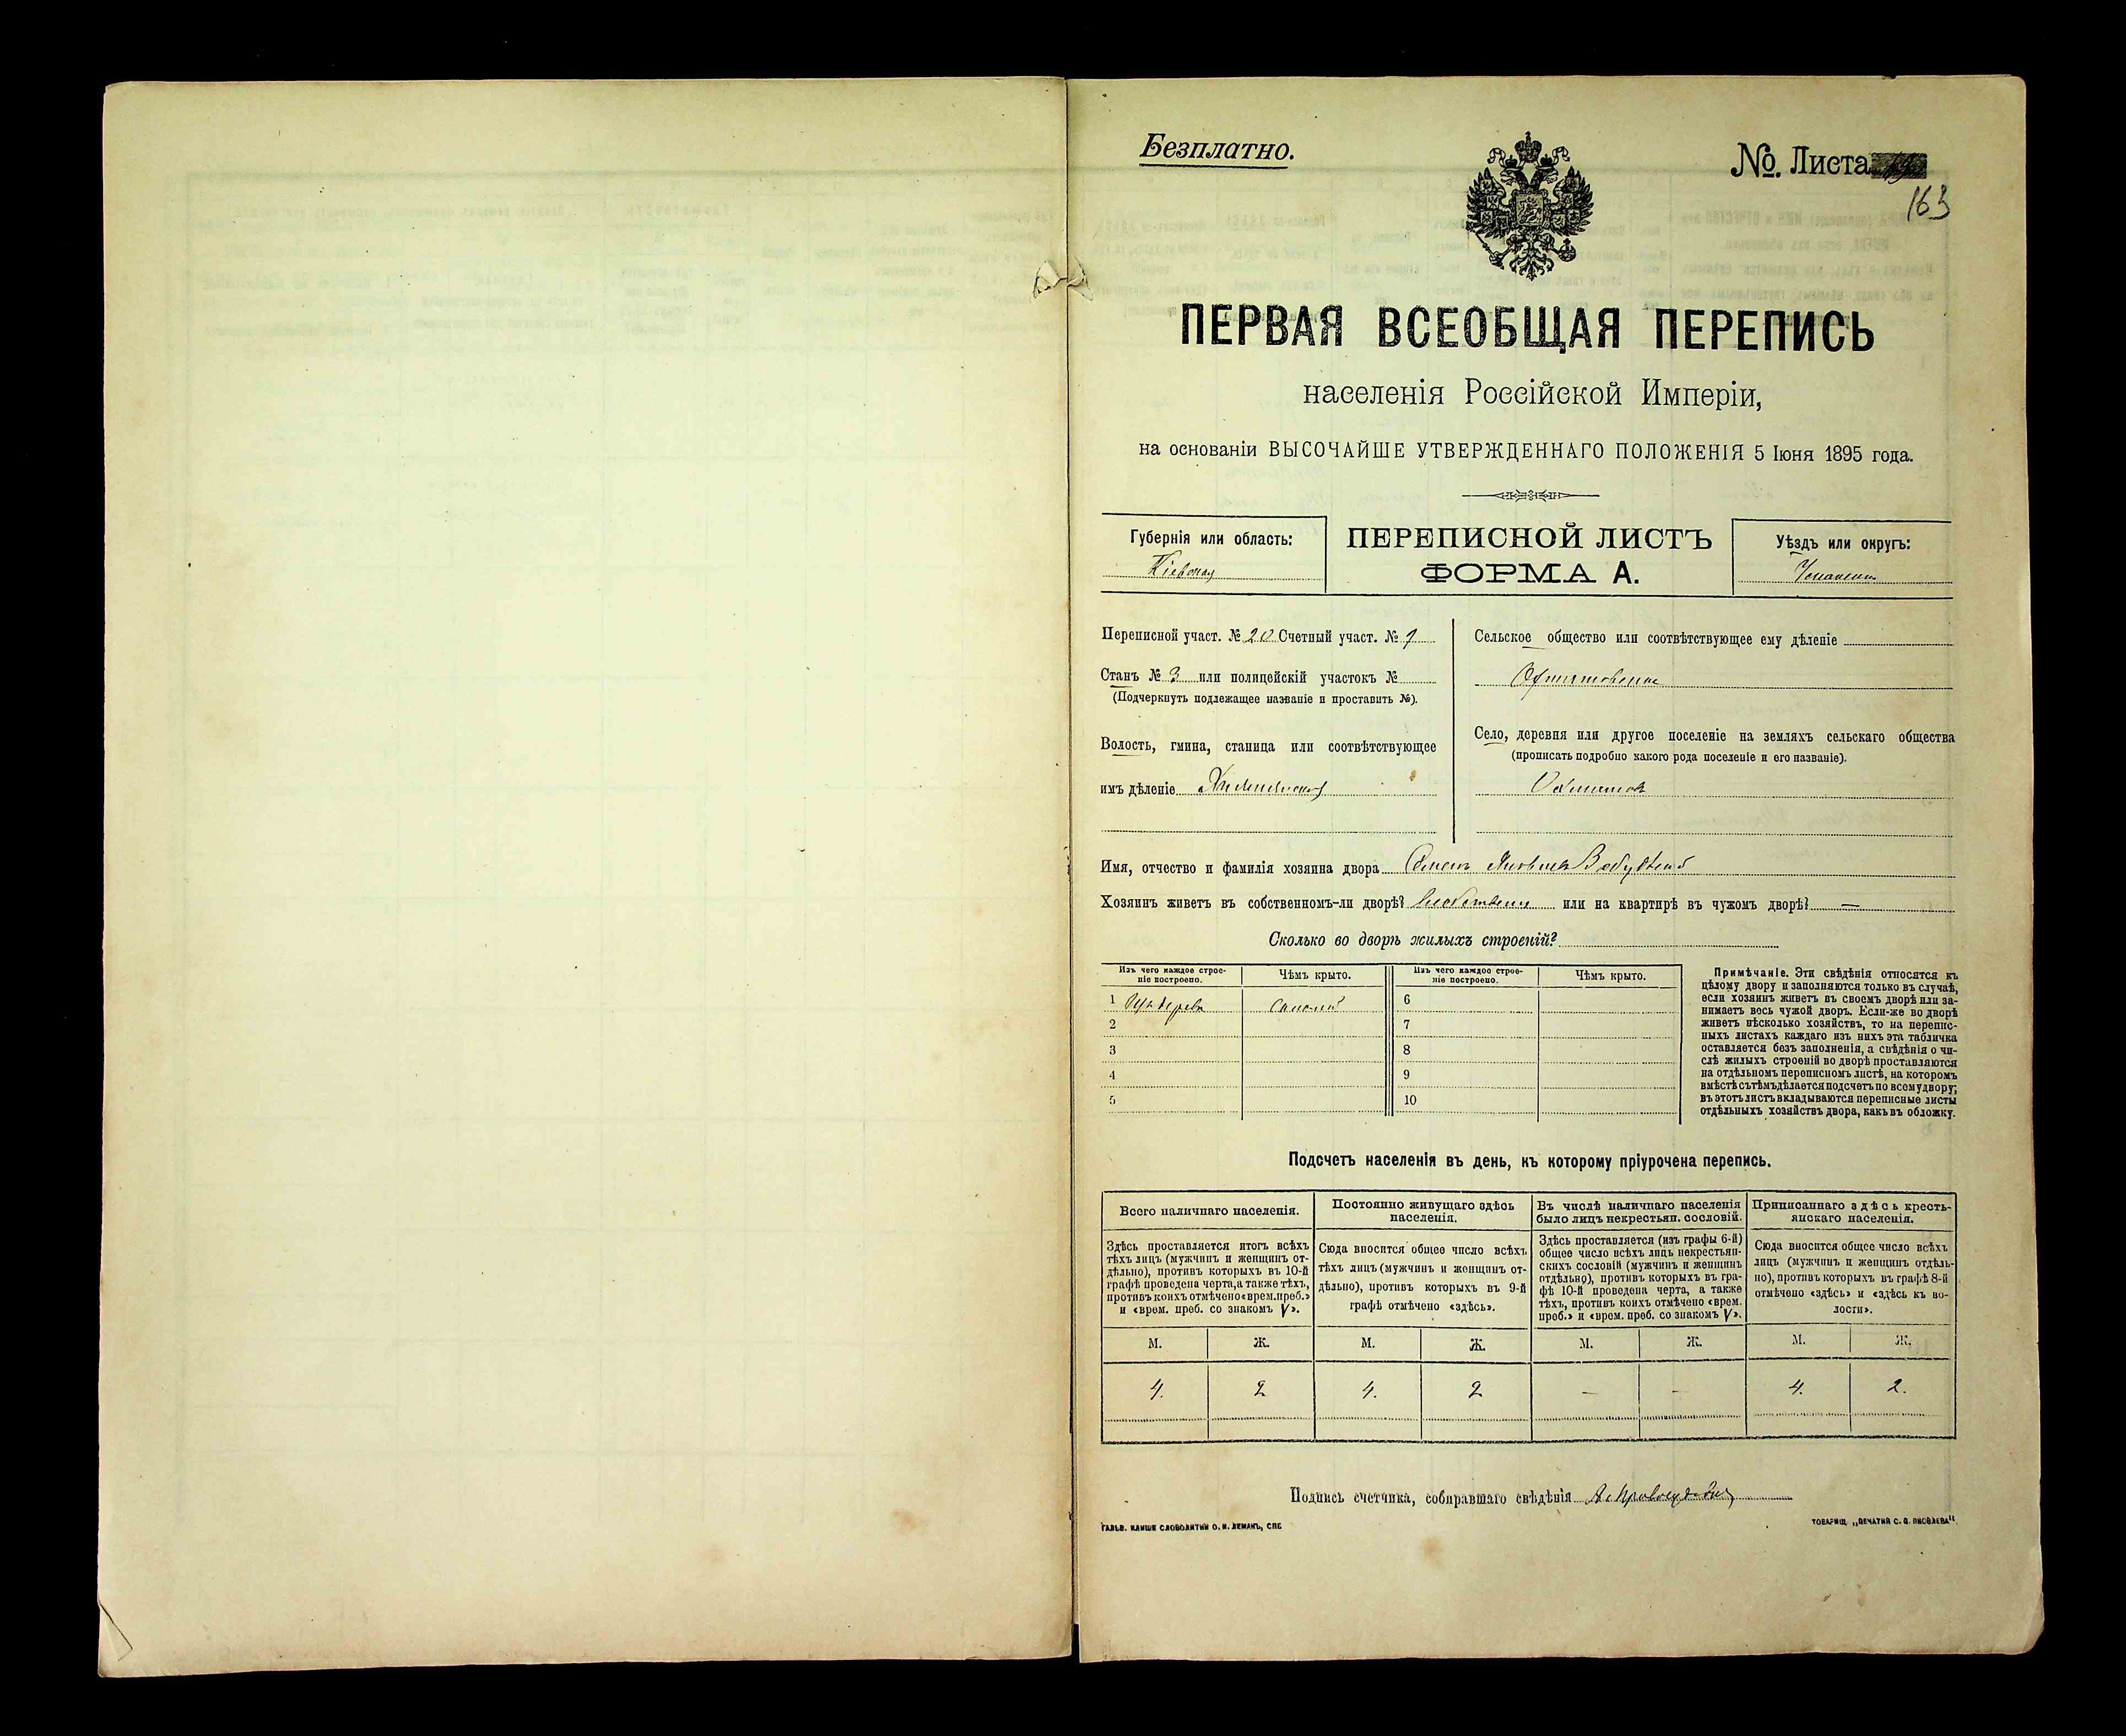 Безплатно.
№. Листа
163
ПЕРВАЯ ВСЕОБЩАЯ ПЕРЕПИСЬ
населенія Россійской Имперіи,
на основаніи ВЫСОЧАЙШЕ УТВЕРЖДЕННАГО ПОЛОЖЕНІЯ 5 Іюня 1895 года.
Губернія или область:
Кіевская
ПЕРЕПИСНОЙ ЛИСТЪ
ФОРМА А.
Уѣздъ или округъ:
Переписной участ. № 20 Счетный участ. №
Станъ № 3 или полицейскій участокъ №
(Подчеркнуть подлежащее названіе и проставить №).
Волость, гмина, станица или соотвѣтствующее
имъ дѣленіе
Сельское общество или соотвѣтствующее ему дѣленіе
Село, деревня или другое поселеніе на земляхъ сельскаго общества
(прописать подробно какого рода поселеніе и его названіе).
Имя, отчество и фамилія хозяина двора
Хозяинъ живетъ въ собственномъ-ли дворѣ? или на квартирѣ въ чужомъ дворѣ? —
Сколько во дворѣ жилыхъ строеній?
Изъ чего каждое строе-
ніе построено.
Чѣмъ крыто.
Изъ чего каждое строе-
ніе построено.
Чѣмъ крыто.
1
2
3
4
5
6
7
8
9
10
Примѣчаніе. Эти свѣдѣнія относятся къ
цѣлому двору и заполняются только въ случаѣ,
если хозяинъ живетъ въ своемъ дворѣ или за-
нимаетъ весь чужой дворъ. Если-же во дворѣ
живетъ нѣсколько хозяйствъ, то на перепис-
ныхъ листахъ каждаго изъ нихъ эта табличка
оставляется безъ заполненія, а свѣдѣнія о чи-
слѣ жилыхъ строеній во дворѣ проставляются
на отдѣльномъ переписномъ листѣ, на которомъ
вмѣстѣ съ тѣмъ дѣлается подсчетъ по всему двору;
въ этотъ листъ вкладываются переписные листы
отдѣльныхъ хозяйствъ двора, какъ въ обложку.
Подсчетъ населенія въ день, къ которому пріурочена перепись.
Всего наличнаго населенія.
Здѣсь проставляется итогъ всѣхъ
тѣхъ лицъ (мужчинъ и женщинъ от-
дѣльно), противъ которыхъ въ 10-й
графѣ проведена черта, а также тѣхъ,
противъ коихъ отмѣчено «врем. преб.»
и «врем. преб. со знакомъ V».
Постоянно живущаго здѣсь
населенія.
Сюда вносится общее число всѣхъ
тѣхъ лицъ (мужчинъ и женщинъ от-
дѣльно), противъ которыхъ въ 9-й
графѣ отмѣчено «здѣсь».
Въ числѣ наличнаго населенія
было лицъ некрестьян. сословій.
Здѣсь проставляется (изъ графы 6-й)
общее число всѣхъ лицъ некрестьян-
скихъ сословій (мужчинъ и женщинъ
отдѣльно), противъ которыхъ въ гра-
фѣ 10-й проведена черта, а также
тѣхъ, противъ коихъ отмѣчено «врем.
преб.» и «врем. преб. со знакомъ V».
Приписаннаго здѣсь кресть-
янскаго населенія.
Сюда вносится общее число всѣхъ
лицъ (мужчинъ и женщинъ отдѣль-
но), противъ которыхъ въ графѣ 8-й
отмѣчено «здѣсь» и «здѣсь къ во-
лости».
М. Ж. М. Ж. М. Ж. М. Ж.
4. 2 4. 2 — — 4. 2.
Подпись счетчика, собиравшаго свѣдѣнія
ГАЛЬВ. КЛИШЕ СЛОВОЛИТНИ О. И. ЛЕМАНЪ, СПБ.
ТОВАРИЩ. „ПЕЧАТНЯ С. П. ЯКОВЛЕВА“.